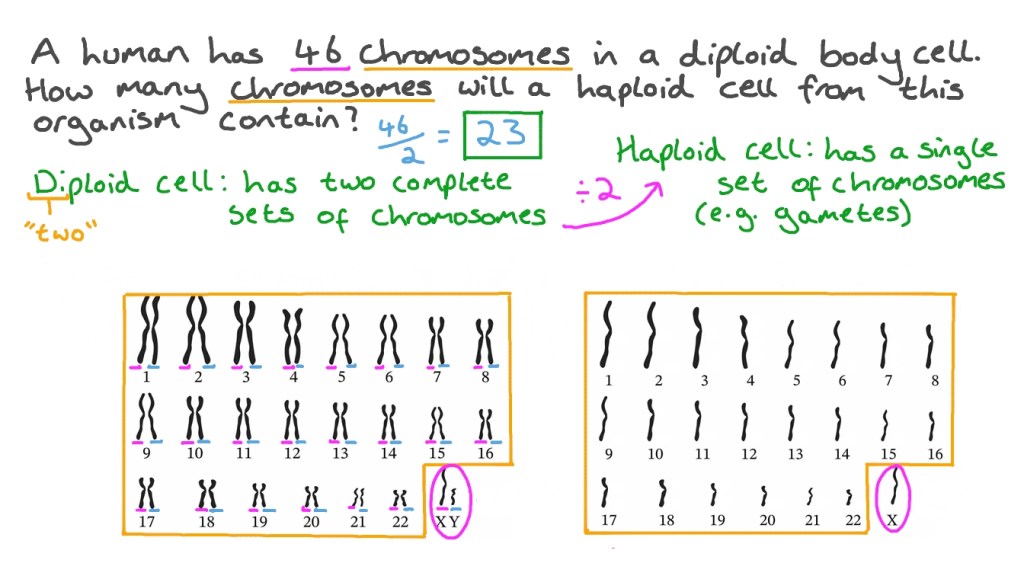 A human has 46 chromosomes in a diploid body cell.
How many chromosomes will a haploid cell from this
organism contain? 46/2 = 23
Haploid cell: has a single
set of chromosomes
(e.g. gametes)
Diploid cell: has two complete
sets of chromosomes
÷2
"two"
1 2 3 4 5 6 7 8
9 10 11 12 13 14 15 16
17 18 19 20 21 22 X Y
1 2 3 4 5 6 7 8
9 10 11 12 13 14 15 16
17 18 19 20 21 22 X